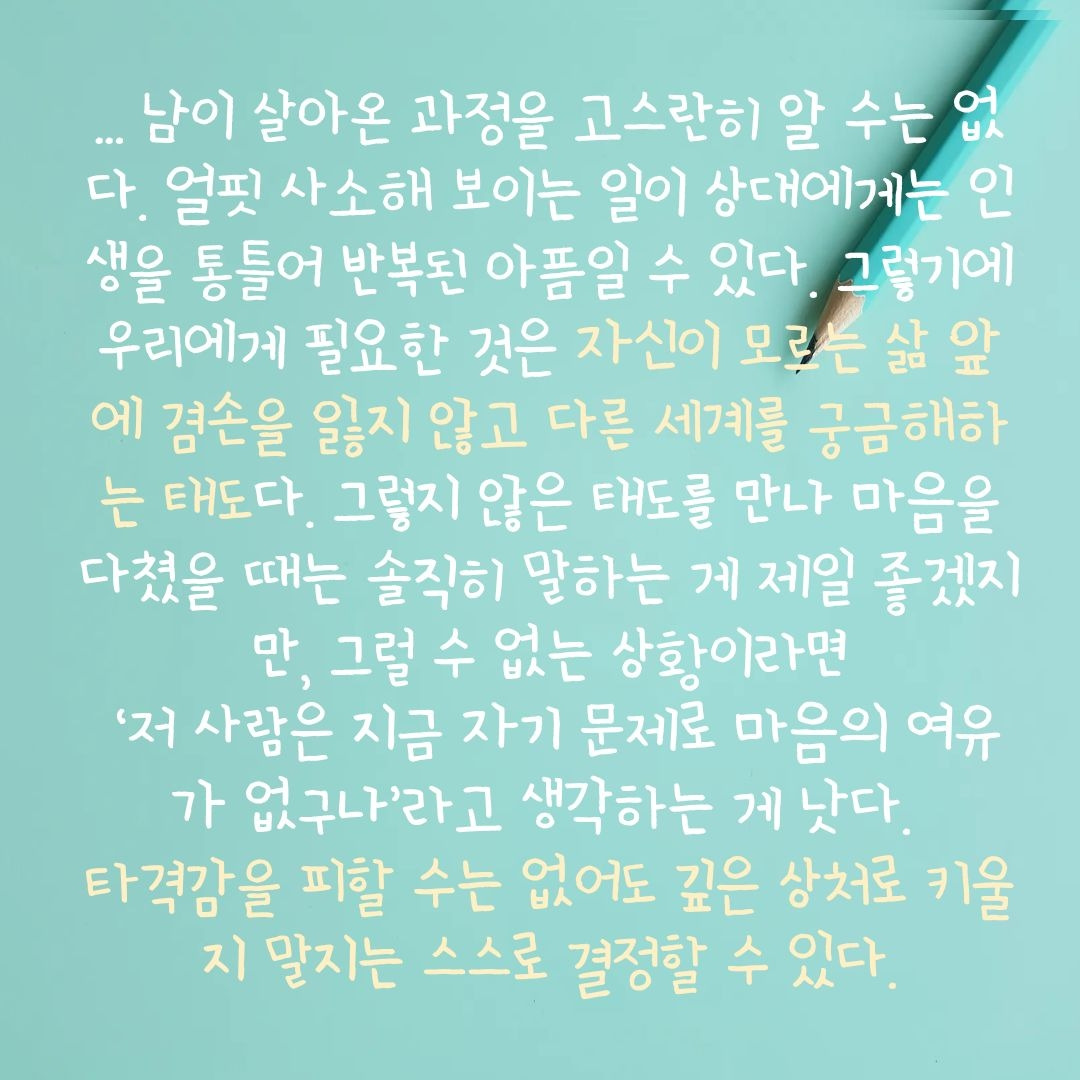 ... 남이 살아온 과정을 고스란히 알 수는 없
다. 얼핏 사소해 보이는 일이 상대에게는 인
생을 통틀어 반복된 아픔일 수 있다. 그렇기에
우리에게 필요한 것은 자신이 모르는 삶 앞
에 겸손을 잃지 않고 다른 세계를 궁금해하
는 태도다. 그렇지 않은 태도를 만나 마음을
다쳤을 때는 솔직히 말하는 게 제일 좋겠지
만, 그럴 수 없는 상황이라면
‘저 사람은 지금 자기 문제로 마음의 여유
가 없구나’라고 생각하는 게 낫다.
타격감을 피할 수는 없어도 깊은 상처로 키울
지 말지는 스스로 결정할 수 있다.